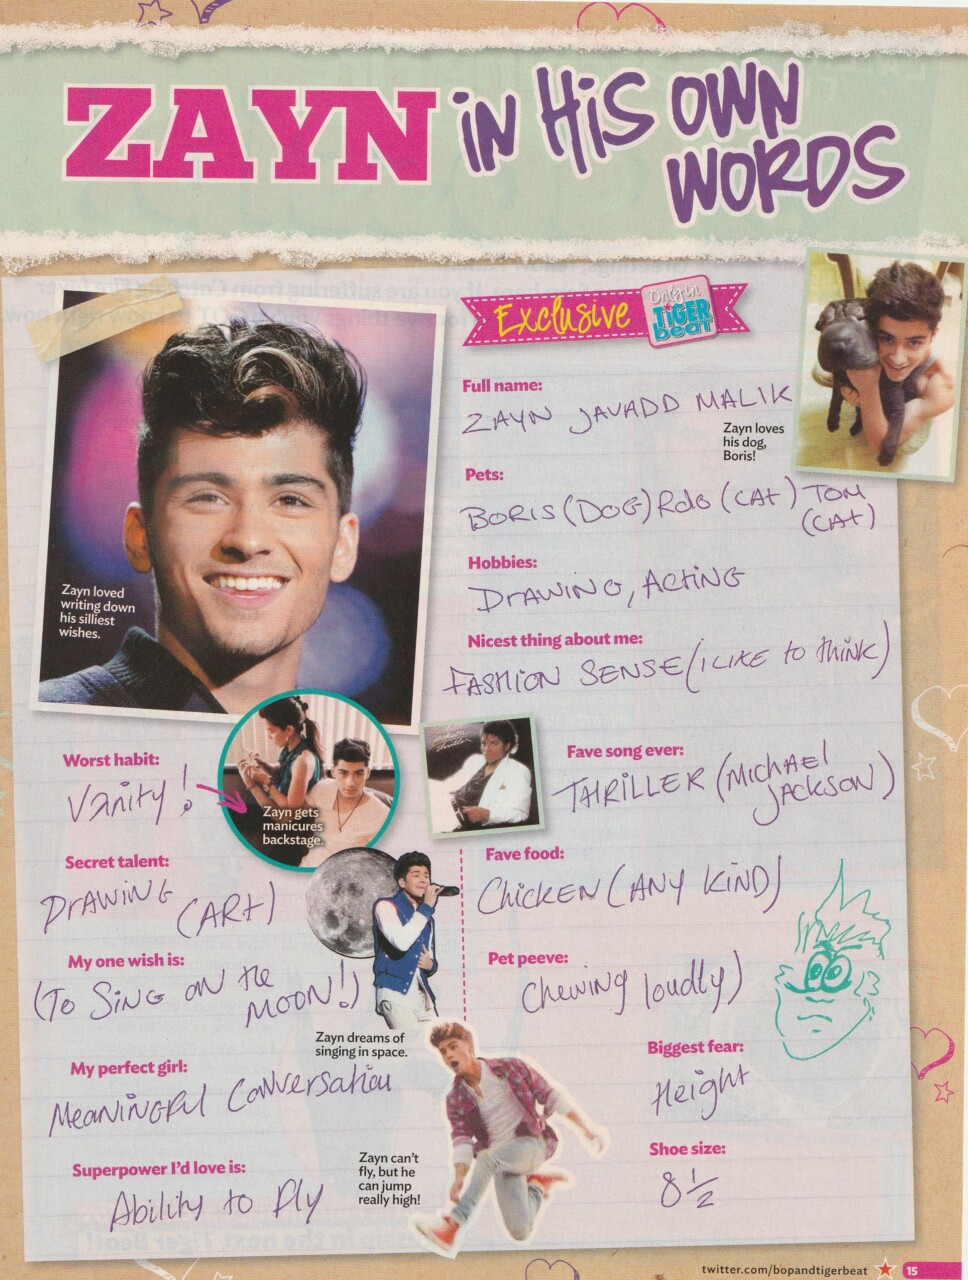 ZAYN iN HiS OWN
WORDS
Exclusive
Only in
TiGER
beat
Full name:
ZAYN JAVADD MALIK
Zayn loves
his dog,
Boris!
Pets:
BORIS (DOG) Rolo (CAt) TOM
(CAt)
Hobbies:
DrAWING, ActiNG
Nicest thing about me:
FASHION SENSE (i LIKE to thiNK)
Zayn loved
writing down
his silliest
wishes.
Worst habit:
Vanity!
Zayn gets
manicures
backstage.
Fave song ever:
THRILLER (MICHAEL
JACKSON)
Secret talent:
DrAWING
(ARt)
Fave food:
Chicken (ANY KIND)
My one wish is:
(To SiNG oN the
MOON!)
Zayn dreams of
singing in space.
Pet peeve:
Chewing loudly)
My perfect girl:
MeaNiNgful Conversation
Biggest fear:
Height
Superpower I'd love is:
Ability to fly
Zayn can't
fly, but he
can jump
really high!
Shoe size:
8 ½
twitter.com/bopandtigerbeat 15